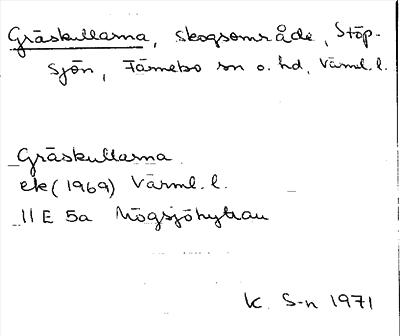 Gräskullarna, skogsområde, Stöp-
sjön, Färnebo sn o. hd, Värml. l.
Gräskullarna
ek (1969) Värml. l.
11 E 5a Högsjöhyttan
K. S-n 1971